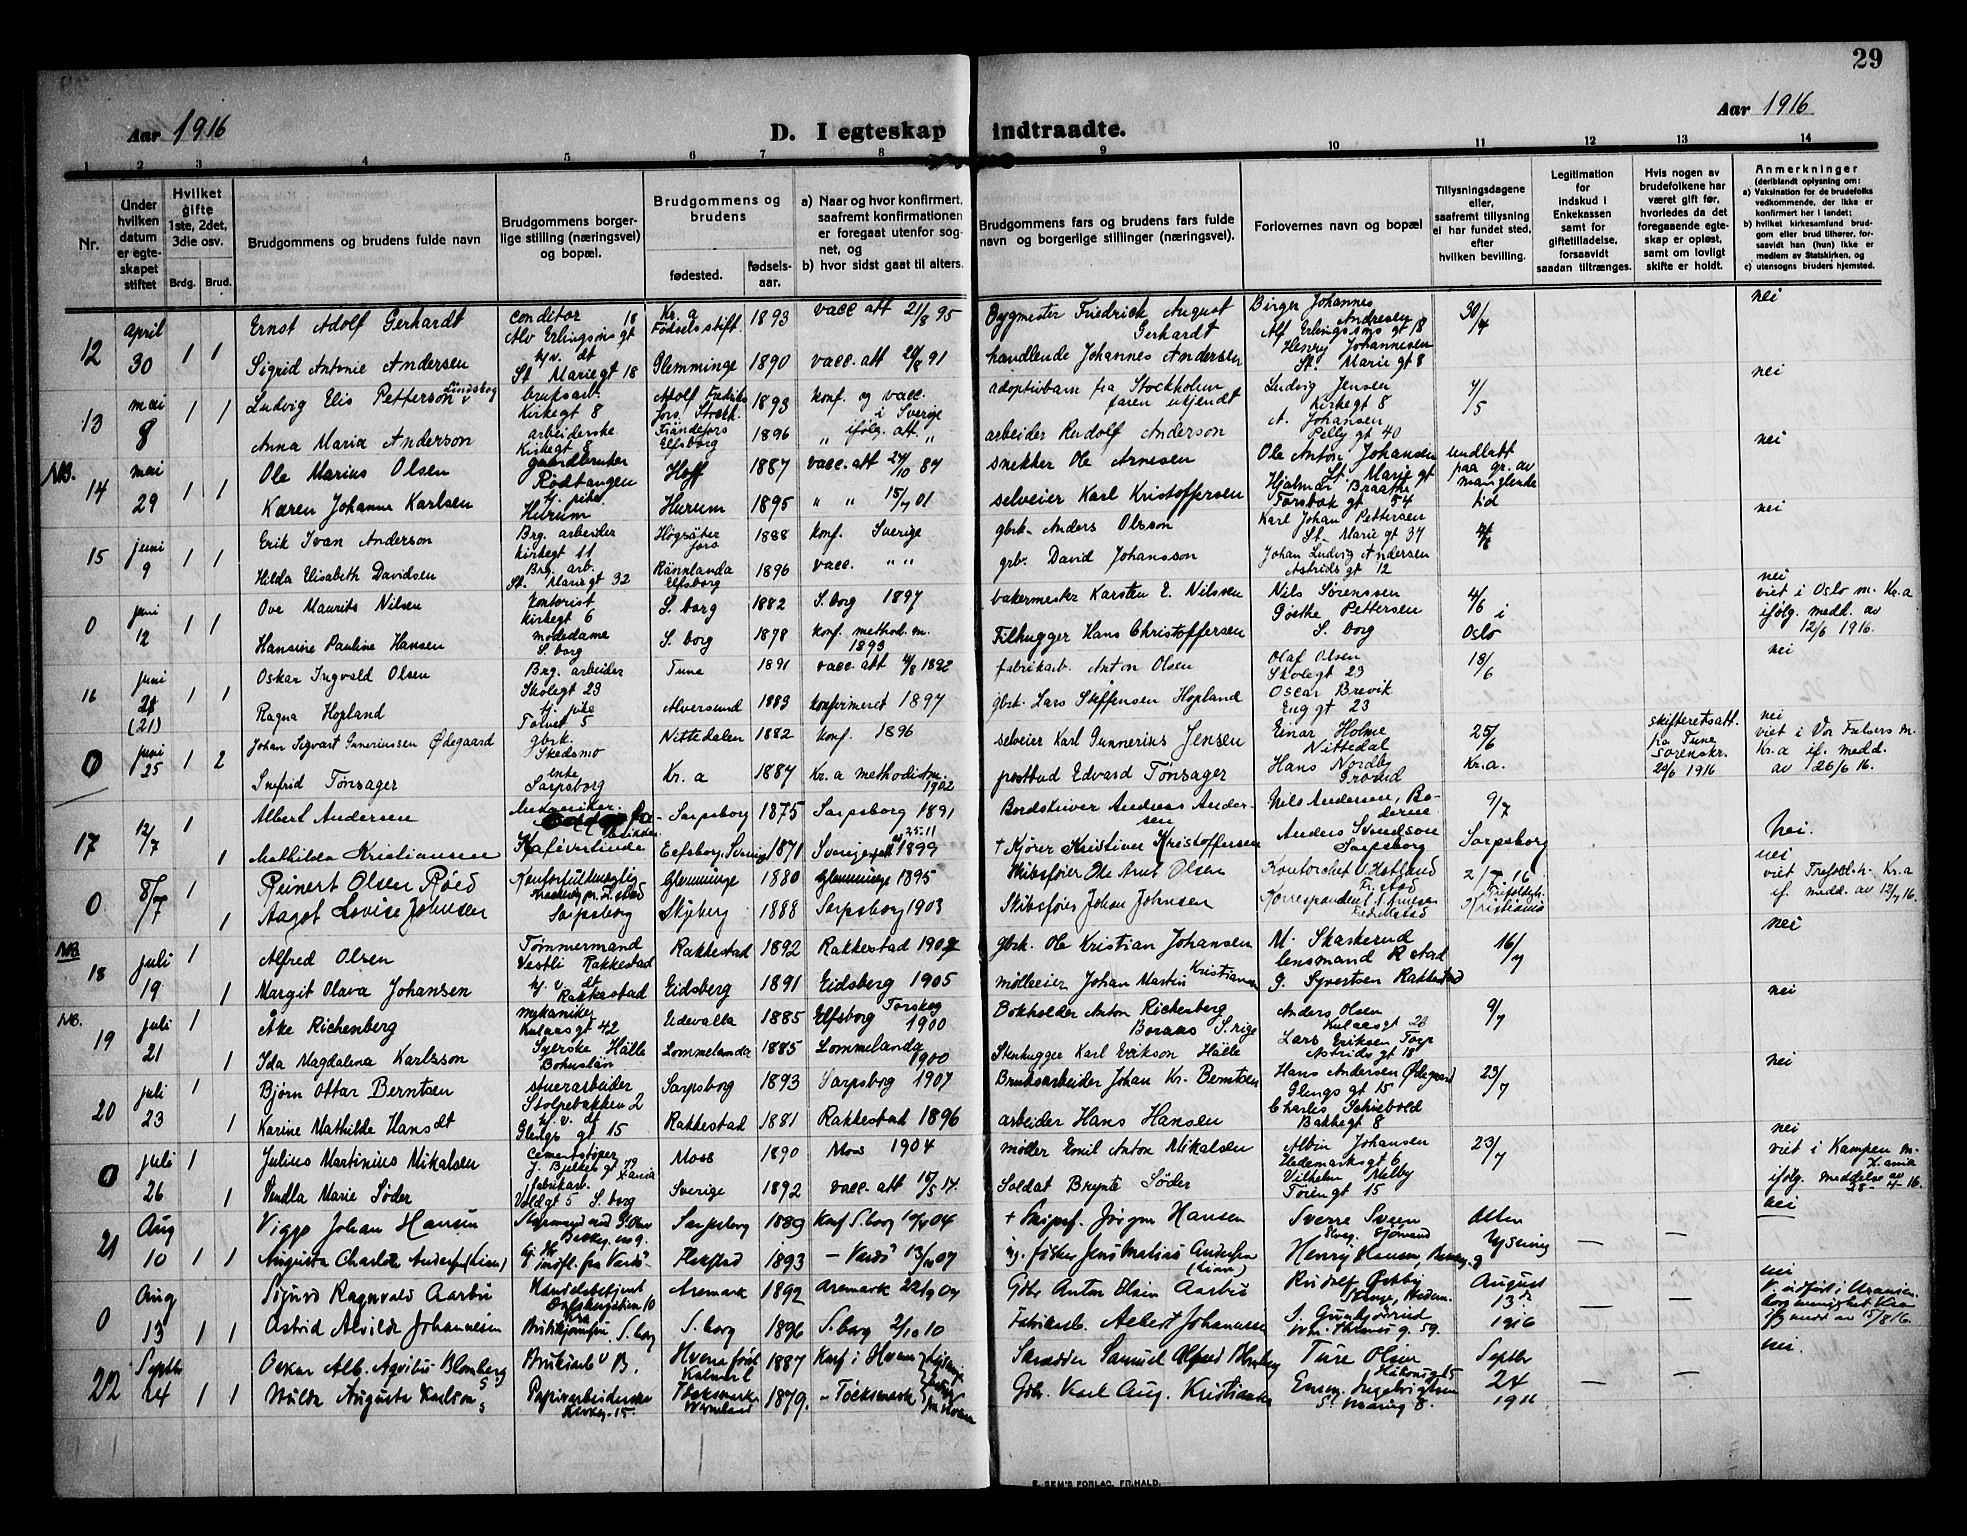 29
Aar 1916
D. I egteskap indtraadte.
Aar 1916
1 2 3 4 5 6 7 8 9 10 11 12 13 14
Nr.
Under hvilken datum er egteskapet stiftet
Hvilket gifte 1ste, 2det, 3die osv.
Brdg. Brud.
Brudgommens og brudens fulde navn
Brudgommens borgerlige stilling (næringsvei) og bopæl.
Brudgommens og brudens
fødested.
fødselsaar.
a) Naar og hvor konfirmert, saafremt konfirmationen er foregaat utenfor sognet, og
b) hvor sidst gaat til alters.
Brudgommens fars og brudens fars fulde navn og borgerlige stillinger (næringsvei).
Forlovernes navn og bopæl
Tillysningsdagene eller, saafremt tillysning ei har fundet sted, efter hvilken bevilling.
Legitimation for indskud i Enkekassen samt for giftetilladelse, forsaavidt saadan tiltrænges.
Hvis nogen av brudefolkene har været gift før, hvorledes da det foregaaende egteskap er opløst, samt om lovligt skifte er holdt.
Anmerkninger
(deriblandt oplysning om:
a) Vaksination for de brudefolks vedkommende, der ikke er konfirmert her i landet;
b) hvilket kirkesamfund brudgom eller brud tilhører, forsaavidt han (hun) ikke er medlem av Statskirken, og
c) utensogns bruders hjemsted.
12 april 30 1 1
Ernst Adolf Gerhardt conditor Alv Erlingsøns gt 18 Kr. a Fødselsstift. 1893 vacc att 21/8 95 Bygmester Friedrick August Gerhardt Birger Johannes Andresen Alf Erlingsøns gt 18 30/4 nei
Sigrid Antonie Andersen hj.v. dt St. Marie gt 18 Glemminge 1890 vacc. att 20/8 91 handlende Johannes Andersen Henry Johannesen St. Marie gt 8
13 mai 8 1 1
Ludvig Elis Petterson Lindskog bruksarb. Kirkegt 8 Adolf Fredriks fors. Stock. 1893 konf. og vacc. i Sverige adoptivbarn fra Stockholm faren ukjendt Ludvig Jensen Kirkegt 8 7/5 nei
Anna Maria Anderson arbeiderske Kirkegt 8 Frändefors Elfsborg 1896 „ ifølg. att. „ arbeider Rudolf Anderson A. Johansen Pelly gt 40
NB. 14 mai 29 1 1
Ole Marius Olsen gaardbruker Rødtangen Hoff 1887 vacc. att 24/10 87 snekker Ole Arnesen Ole Anton Johansen St. Marie gt undlatt paa gr. av manglende tid nei
Karen Johanne Karlsen hj. pike Hurum Hurum 1895 „ „ 15/7 01 selveier Karl Kristoffersen Hjalmar Braathe Torsbæk gt 54
15 juni 9 1 1
Erik Ivan Anderson Brg. arbeider Kirkegt 11 Högsäter fors 1888 konf. Sverige gbrk. Anders Olsson Karl Johan Pettersen St. Marie gt 37 4/6 nei
Hilda Elisabeth Davidsen Brg. arb. St. Marie gt 32 Rännlanda Elfsborg 1896 vacc. „ „ grb. David Johansson Johan Ludvig Andersen Astrids gt 12
0 juni 12 1 1
Ove Maurits Nilsen kontorist Kirkegt 6 S. borg 1882 S. borg 1897 bakermester Karsten E. Nilssen Nils Sørenssen 4/6 i Oslo nei viet i Oslo m. Kr.a ifølg. medd. av 12/6 1916.
Hansine Pauline Hansen modedame S. borg S. borg 1878 konf. methodm. 1893 Filhugger Hans Christoffersen Goethe Pettersen S. borg
16 juni 21 (21) 1 1
Oskar Ingvald Olsen Brg. arbeider Skolegt 23 Tune 1891 vacc. att 4/8 1892 fabrikarb. Anton Olsen Olaf Olsen Skolegt 23 18/6 nei
Ragna Hopland hj. pike Torvet 5 Alversund 1883 konfirmeret 1897 gbrk. Lars Steffensen Hopland Oscar Brevik Enggt 23
0 juni 25 1 2
Johan Sigvart Gunerinssen Ødegaard gbrk. Skedsmo Nittedalen 1882 konf. 1896 selveier Karl Gunnerius Jensen Einar Holme Nittedal 25/6 Kr.a. skifteretsatt. fra Tune sorenskr. 24/6 1916 nei viet i Vor Frelsers m. Kr. a if. medd. av 26/6 16.
Snefrid Tønsager enke Sarpsborg Kr. a 1887 Kr. a methodistm. 1902 postbud Edvard Tønsager Hans Nordby Grorud
17 12/7 1 1
Albert Andersen Mekaniker Sarpsborg 1875 Sarpsborg 1891 Bordskriver Andreas Andersen Nils Andersen, Boderne 9/7 Sarpsborg Nei.
Mathilda Kristiansen Kafévertinde Elfsborg, Sverige 1871 Sverige 1899 + Kjører Kristian Kristoffersen Anders Svendsen Sarpsborg
0 8/7 1 1
Reinert Olsen Røed Glemminge 1880 Glemminge 1895 Skibsfører Ole Arnt Olsen Kontorchef O. Hetland Fr.stad 2/7 16 Trefoldigh. Kristiania nei viet Trefold.k. Kr.a if. medd. av 12/7 16.
Aagot Lovise Johnsen Sarpsborg Skjeberg 1888 Sarpsborg 1903 Skibsfører Johan Johnsen Korrespondent Fredrikstad
NB 18 juli 19 1 1
Alfred Olsen Tømmermand Vestli Rakkestad Rakkestad 1892 Rakkestad 1907 gbrk. Ole Kristian Johansen M. Skaskerud lensmand R.stad 16/7 nei
Margit Olava Johansen hj. v. dt Rakkestad Eidsberg 1891 Eidsberg 1905 mølleeier Johan Martin Kristiansen G. Syvertsen Rakkestad
NB. 19 juli 21 1 1
Åke Richenberg mekaniker Kulaasgt 42 Udevalla 1885 Elfsborg Torskog 1900 Bokholder Anton Richenberg Boraas S.rige Anders Olsen Kulaasgt 20 9/7 nei
Ida Magdalena Karlsson Sverske Hälle Bohuslän Lommelanda 1885 Lommelanda 1900 Stenhugger Karl Erikson Hälle Lars Eriksen Torp Astrids gt 18
20 juli 23 1 1
Bjørn Ottar Berntsen stuerarbeider Stolpebakken 2 Sarpsborg 1893 Sarpsborg 1907 Bruksarbeider Johan Kr. Berntsen Hans Andersen Ødegaard Glengs gt 15 23/7 nei
Karine Mathilde Hansdt hj. v. d Glengs gt 15 Rakkestad 1881 Rakkestad 1896 arbeider Hans Hansen Charles Schiebold Bakkegt 8
0 juli 26 1 1
Julius Martinius Mikalsen Cementstøper J. Bjelkes gt 79 Xania Moss 1890 Moss 1904 møller Emil Anton Mikalsen Albin Johansen Hedemarksgt 6 23/7 nei viet i Kampen m. Xania ifølg. meddelse av
Vendla Marie Söder fabrikarb. Voldgt 5 S. borg Sverige 1892 vacc. att 10/5 14. Soldat Brynte Söder Vilhelm Melby Toiengt 15
21 Aug 10 1 1
Viggo Johan Hansen Sarpsborg 1889 Konf S.borg 10/4 04 + Skipsf. Jørgen Hansen Sverre Sveen Alten nei
Augusta Charlotte Andersen (Lian) Hj. indfl. fra Vardö 1893 - Vardö 13/10 07 Jens Matias Andersen (Lian) Henry Hansen — —
0 Aug 13 1 1
Sigurd Ragnvald Aarbu Handelsbetjent Aremark 1892 Aremark 22/9 07 Gdbr Anton Elsin Aarbu Rudolf Østby August 13de 1916 — — nei
Astrid Alvilde Johannesen S. borg S. borg 1896 S. borg 2/10 10 Fabrikarb. Albert Johannessen
22 Septbr 24 1 1
Oskar Alb. Agvilin Blomberg Bruksarb B. Hvena förs. Kalmar l. 1887 Konf i Hvena Skrædder Samuel Alfred Blomberg Ture Olsen Septbr 24 1916 — — nei.
Hulda Auguste Karlson Papirarbeiderske Kirkeg. 15. Töcksmarks Wermland 1879. - Töcksmark Gdbr. Karl Aug. Kristiansen St. Marieg 8.
E. SEM'S FORLAG, FR.HALD.